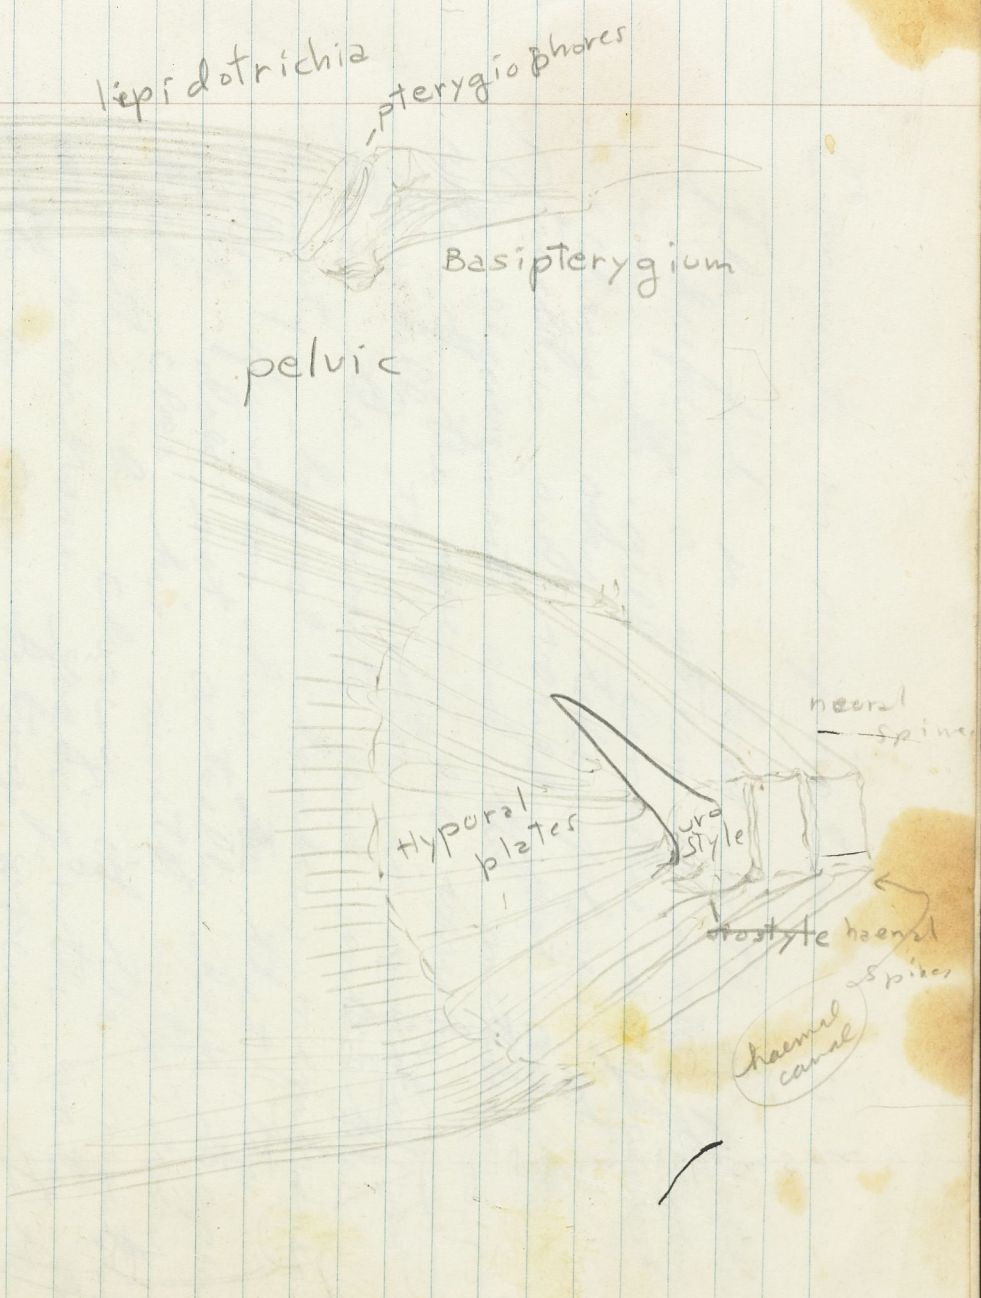 lepidotrichia
pterygiophores
Basipterygium
pelvic
neural
spine
Hypural
plates
uro
style
urostyle haemal
spines
haemal
canal